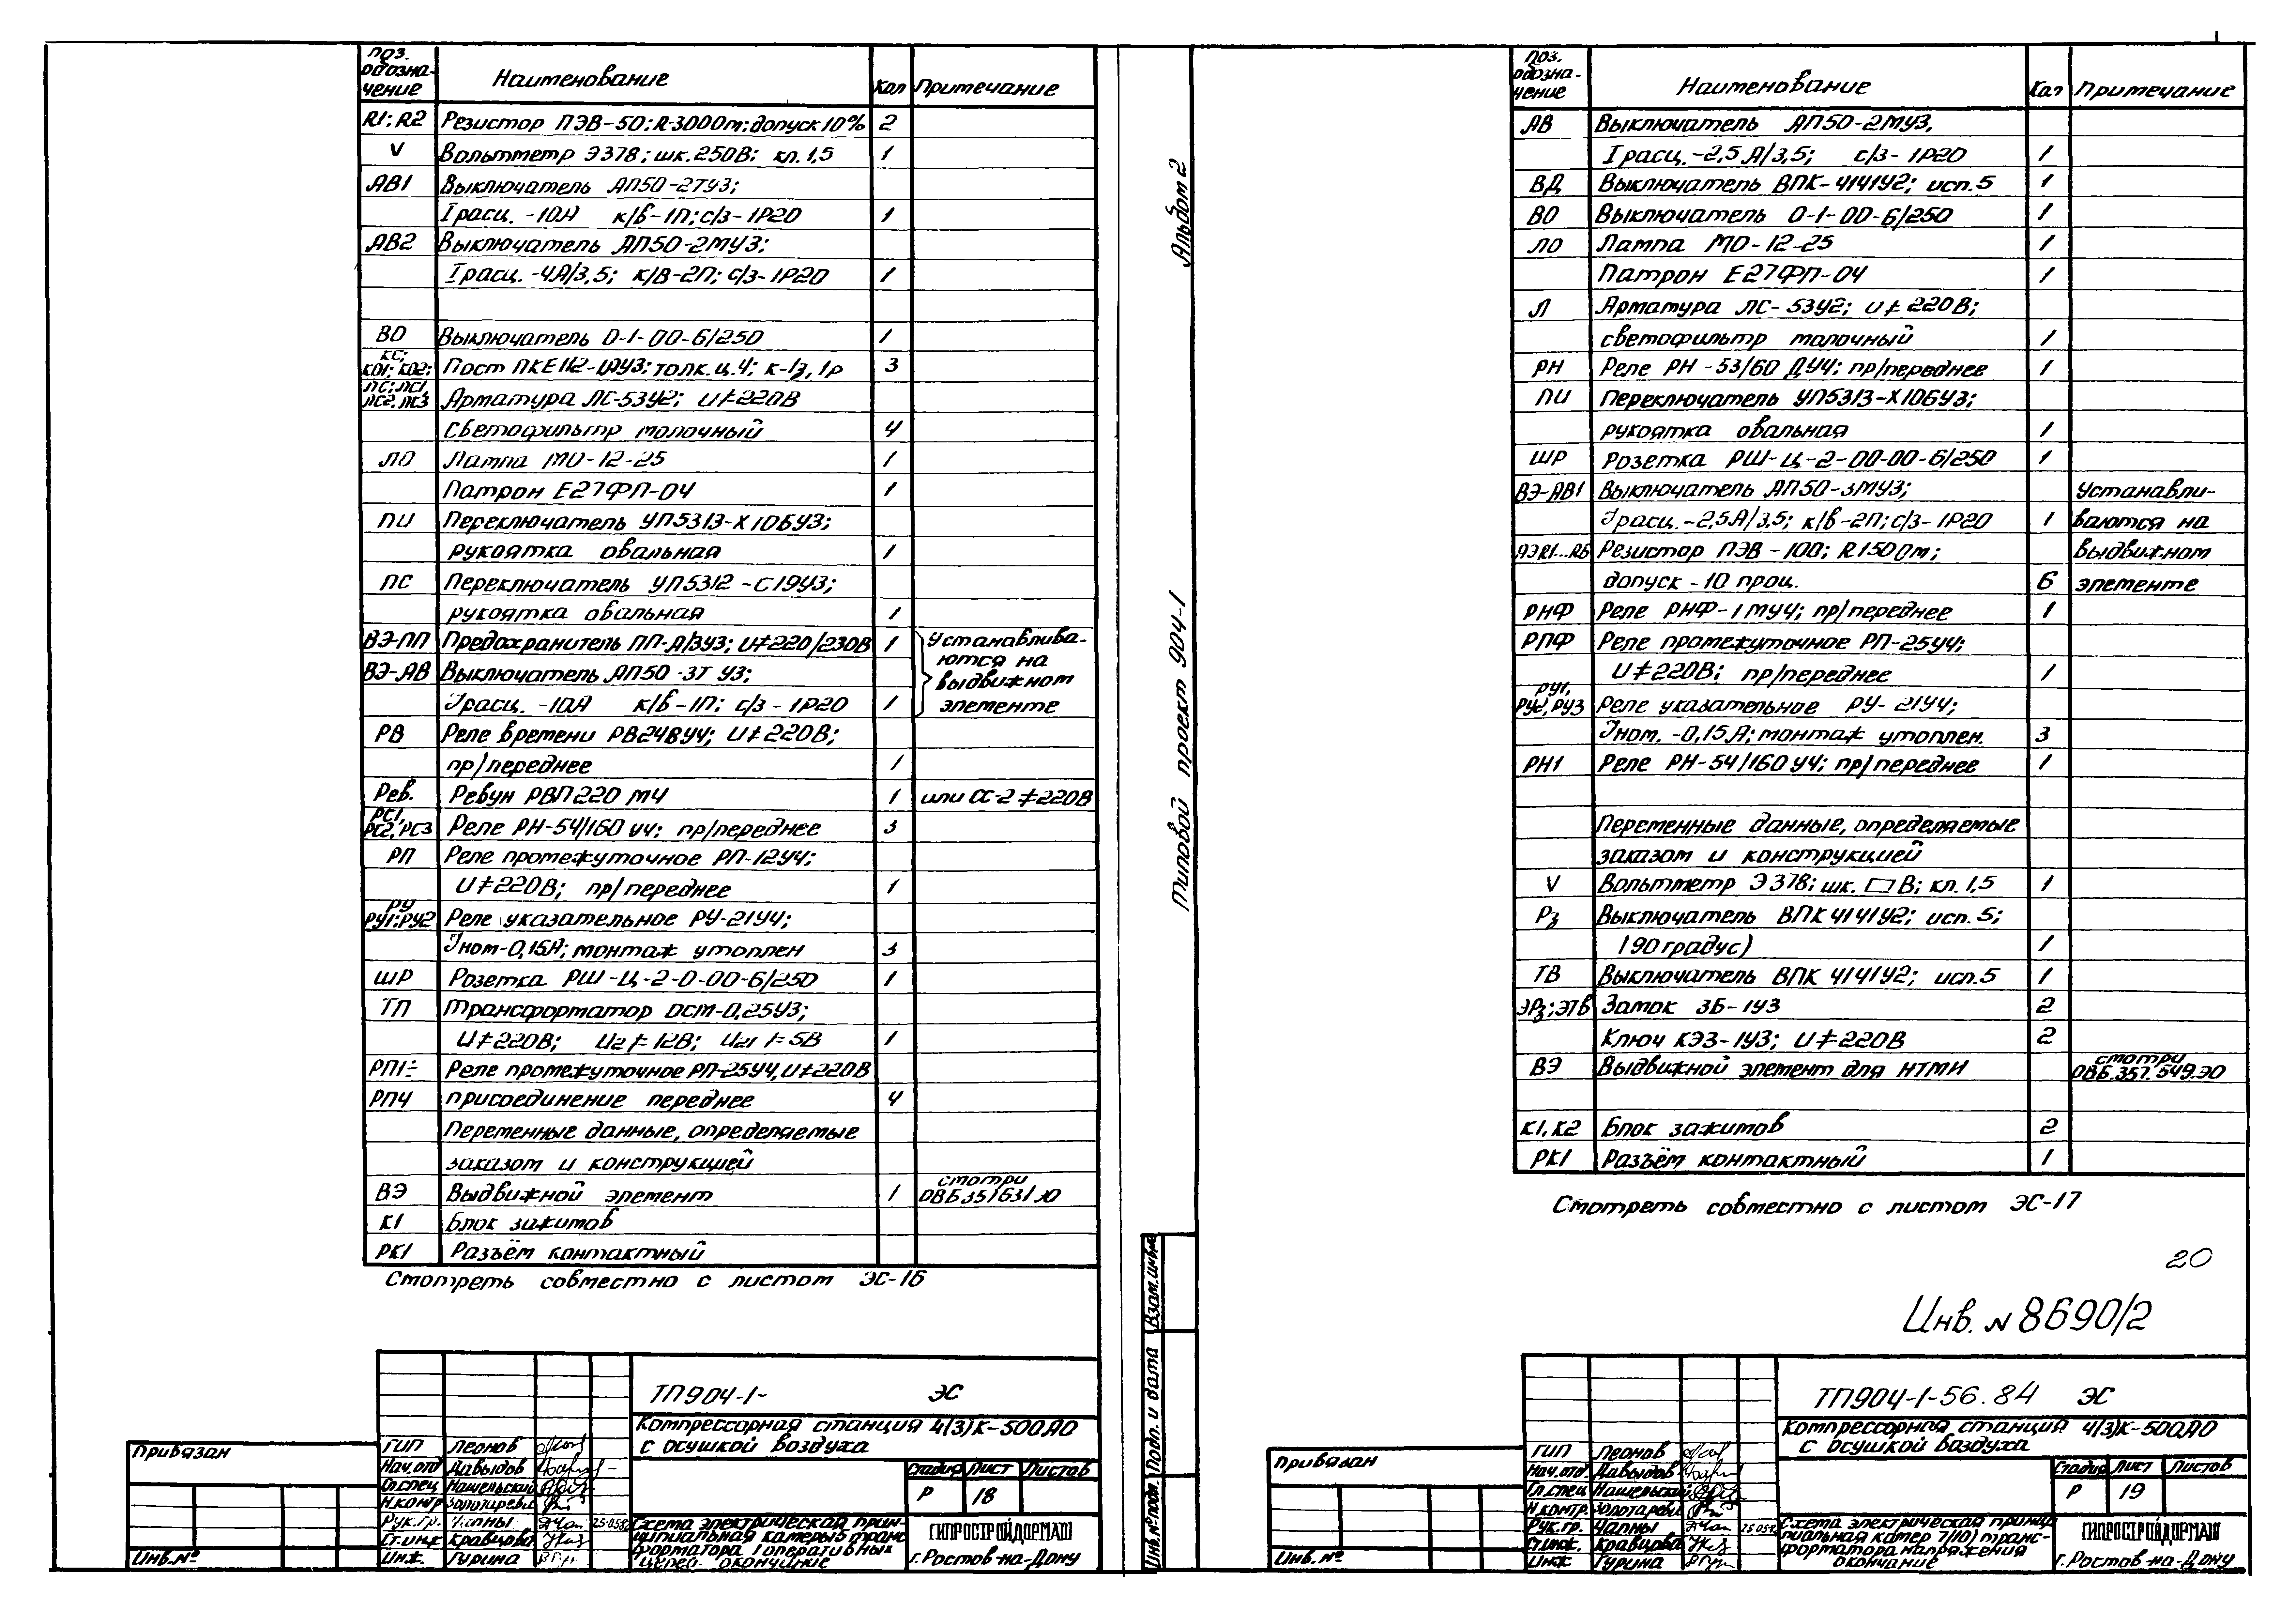 Поз. обозна- чение Наименование Кол Примечание
R1; R2 Резистор ПЭВ-50; R-300Ом; допуск 10% 2
V Вольтметр Э378; шк. 250В; кл. 1,5 1
АВ1 Выключатель АП50-2ТУ3;
Iрасц. -10А к/в-1П; с/з-1Р20 1
АВ2 Выключатель АП50-2МУ3;
Iрасц. -4А/3,5; к/в-2П; с/з-1Р20 1
ВО Выключатель 0-1-00-6/250 1
КС; КО1; КО2; Пост ПКЕ112-1АУ3; толк. ц. Ч; к-1з, 1р 3
ЛС; ЛС1, ЛС2, ЛС3 Арматура ЛС-53У2; U≠220В
светофильтр молочный 4
ЛО Лампа МО-12-25 1
Патрон Е27ФП-04 1
ПИ Переключатель УП5313-Х106У3;
рукоятка овальная 1
ПС Переключатель УП5312-С19У3;
рукоятка овальная 1
ВЭ-ПП Предохранитель ПП-А/3У3; U≠220/230В 1 Устанавлива-
ются на
ВЭ-АВ Выключатель АП50-3Т У3; выдвижном
Iрасц. -10А к/в-1П; с/з-1Р20 1 элементе
РВ Реле времени РВ248У4; U≠220В;
пр/переднее 1
Рев. Ревун РВП220 М4 1 или СС-2 ≠220В
РС1, РС2, РС3 Реле РН-54/160 У4; пр/переднее 3
РП Реле промежуточное РП-12У4;
U≠220В; пр/переднее 1
РУ РУ1; РУ2 Реле указательное РУ-21У4;
Iном-0,15А; монтаж утоплен 3
ШР Розетка РШ-Ц-2-0-00-6/250 1
ТП Трансформатор ОСМ-0,25У3;
U≠220В; U2≠12В; U21≠5В 1
РП1÷ Реле промежуточное РП-25У4, U≠220В
РП4 присоединение переднее 4
Переменные данные, определяемые
заказом и конструкцией
ВЭ Выдвижной элемент 1 смотри ОВБ357631ЭО
К1 Блок зажимов
РК1 Разъём контактный
Смотреть совместно с листом ЭС-16
ТП904-1- ЭС
Компрессорная станция 4(3)К-500АО
с осушкой воздуха
Привязан
ГИП Леонов
Нач.отд Давыдов
Гл.спец Нашельский
Н.контр Золотарев
Рук.гр. Чапны 25.05.82
Ст.инж Кравцова
Инж. Гурина
Инв.№
Стадия Лист Листов
Р 18
Схема электрическая прин-
ципиальная камеры 5 транс
форматора 1 оперативных
цепей. окончание
ГИПРОСТРОЙДОРМАШ
г.Ростов-на-Дону
Альбом 2
Типовой проект 904-1
Взам.инв.№
Подп. и дата
Инв.№ подл.
Поз. обозна- чение Наименование Кол Примечание
АВ Выключатель АП50-2МУ3,
Iрасц.-2,5А/3,5; с/з-1Р20 1
ВД Выключатель ВПК-4141У2; исп.5 1
ВО Выключатель 0-1-00-6/250 1
ЛО Лампа МО-12-25 1
Патрон Е27ФП-04 1
Л Арматура ЛС-53У2; U≠220В;
светофильтр молочный 1
РН Реле РН-53/60 ДУ4; пр/переднее 1
ПИ Переключатель УП5313-Х106У3;
рукоятка овальная 1
ШР Розетка РШ-Ц-2-00-00-6/250 1
ВЭ-АВ1 Выключатель АП50-3МУ3; Устанавли-
Iрасц.-2,5А/3,5; к/в-2П; с/з-1Р20 1 ваются на
ЯЭR1...R6 Резистор ПЭВ-100; R150Ом; выдвижном
допуск-10 проц. 6 элементе
РНФ Реле РНФ-1МУ4; пр/переднее 1
РПФ Реле промежуточное РП-25У4;
U≠220В; пр/переднее 1
РУ1, РУ2, РУ3 Реле указательное РУ-21У4;
Iном.-0,15А; монтаж утоплен. 3
РН1 Реле РН-54/160У4; пр/переднее 1
Переменные данные, определяемые
заказом и конструкцией
V Вольтметр Э378; шк. □ В; кл. 1,5 1
Рз Выключатель ВПК4141У2; исп.5;
190градус) 1
ТВ Выключатель ВПК 4141У2; исп.5 1
ЭРз; ЭТВ Замок ЗБ-1У3 2
Ключ КЭЗ-1У3; U≠220В 2
ВЭ Выдвижной элемент для НТМИ смотри ОВБ.357.549.ЭО
К1, К2 Блок зажимов 2
РК1 Разъём контактный 1
Смотреть совместно с листом ЭС-17
20
Инв. № 8690/2
ТП904-1-56.84 ЭС
Компрессорная станция 4(3)К-500АО
с осушкой воздуха
Привязан
ГИП Леонов
Нач.отд. Давыдов
Гл.спец Нашельский
Н.контр. Золотарев
Рук.гр. Чапны
Ст.инж. Кравцова
Инж Гурина
Инв.№
Стадия Лист Листов
Р 19
Схема электрическая принци
пиальная камер 7(10) транс-
форматора напряжения
окончание
ГИПРОСТРОЙДОРМАШ
г.Ростов-на-Дону